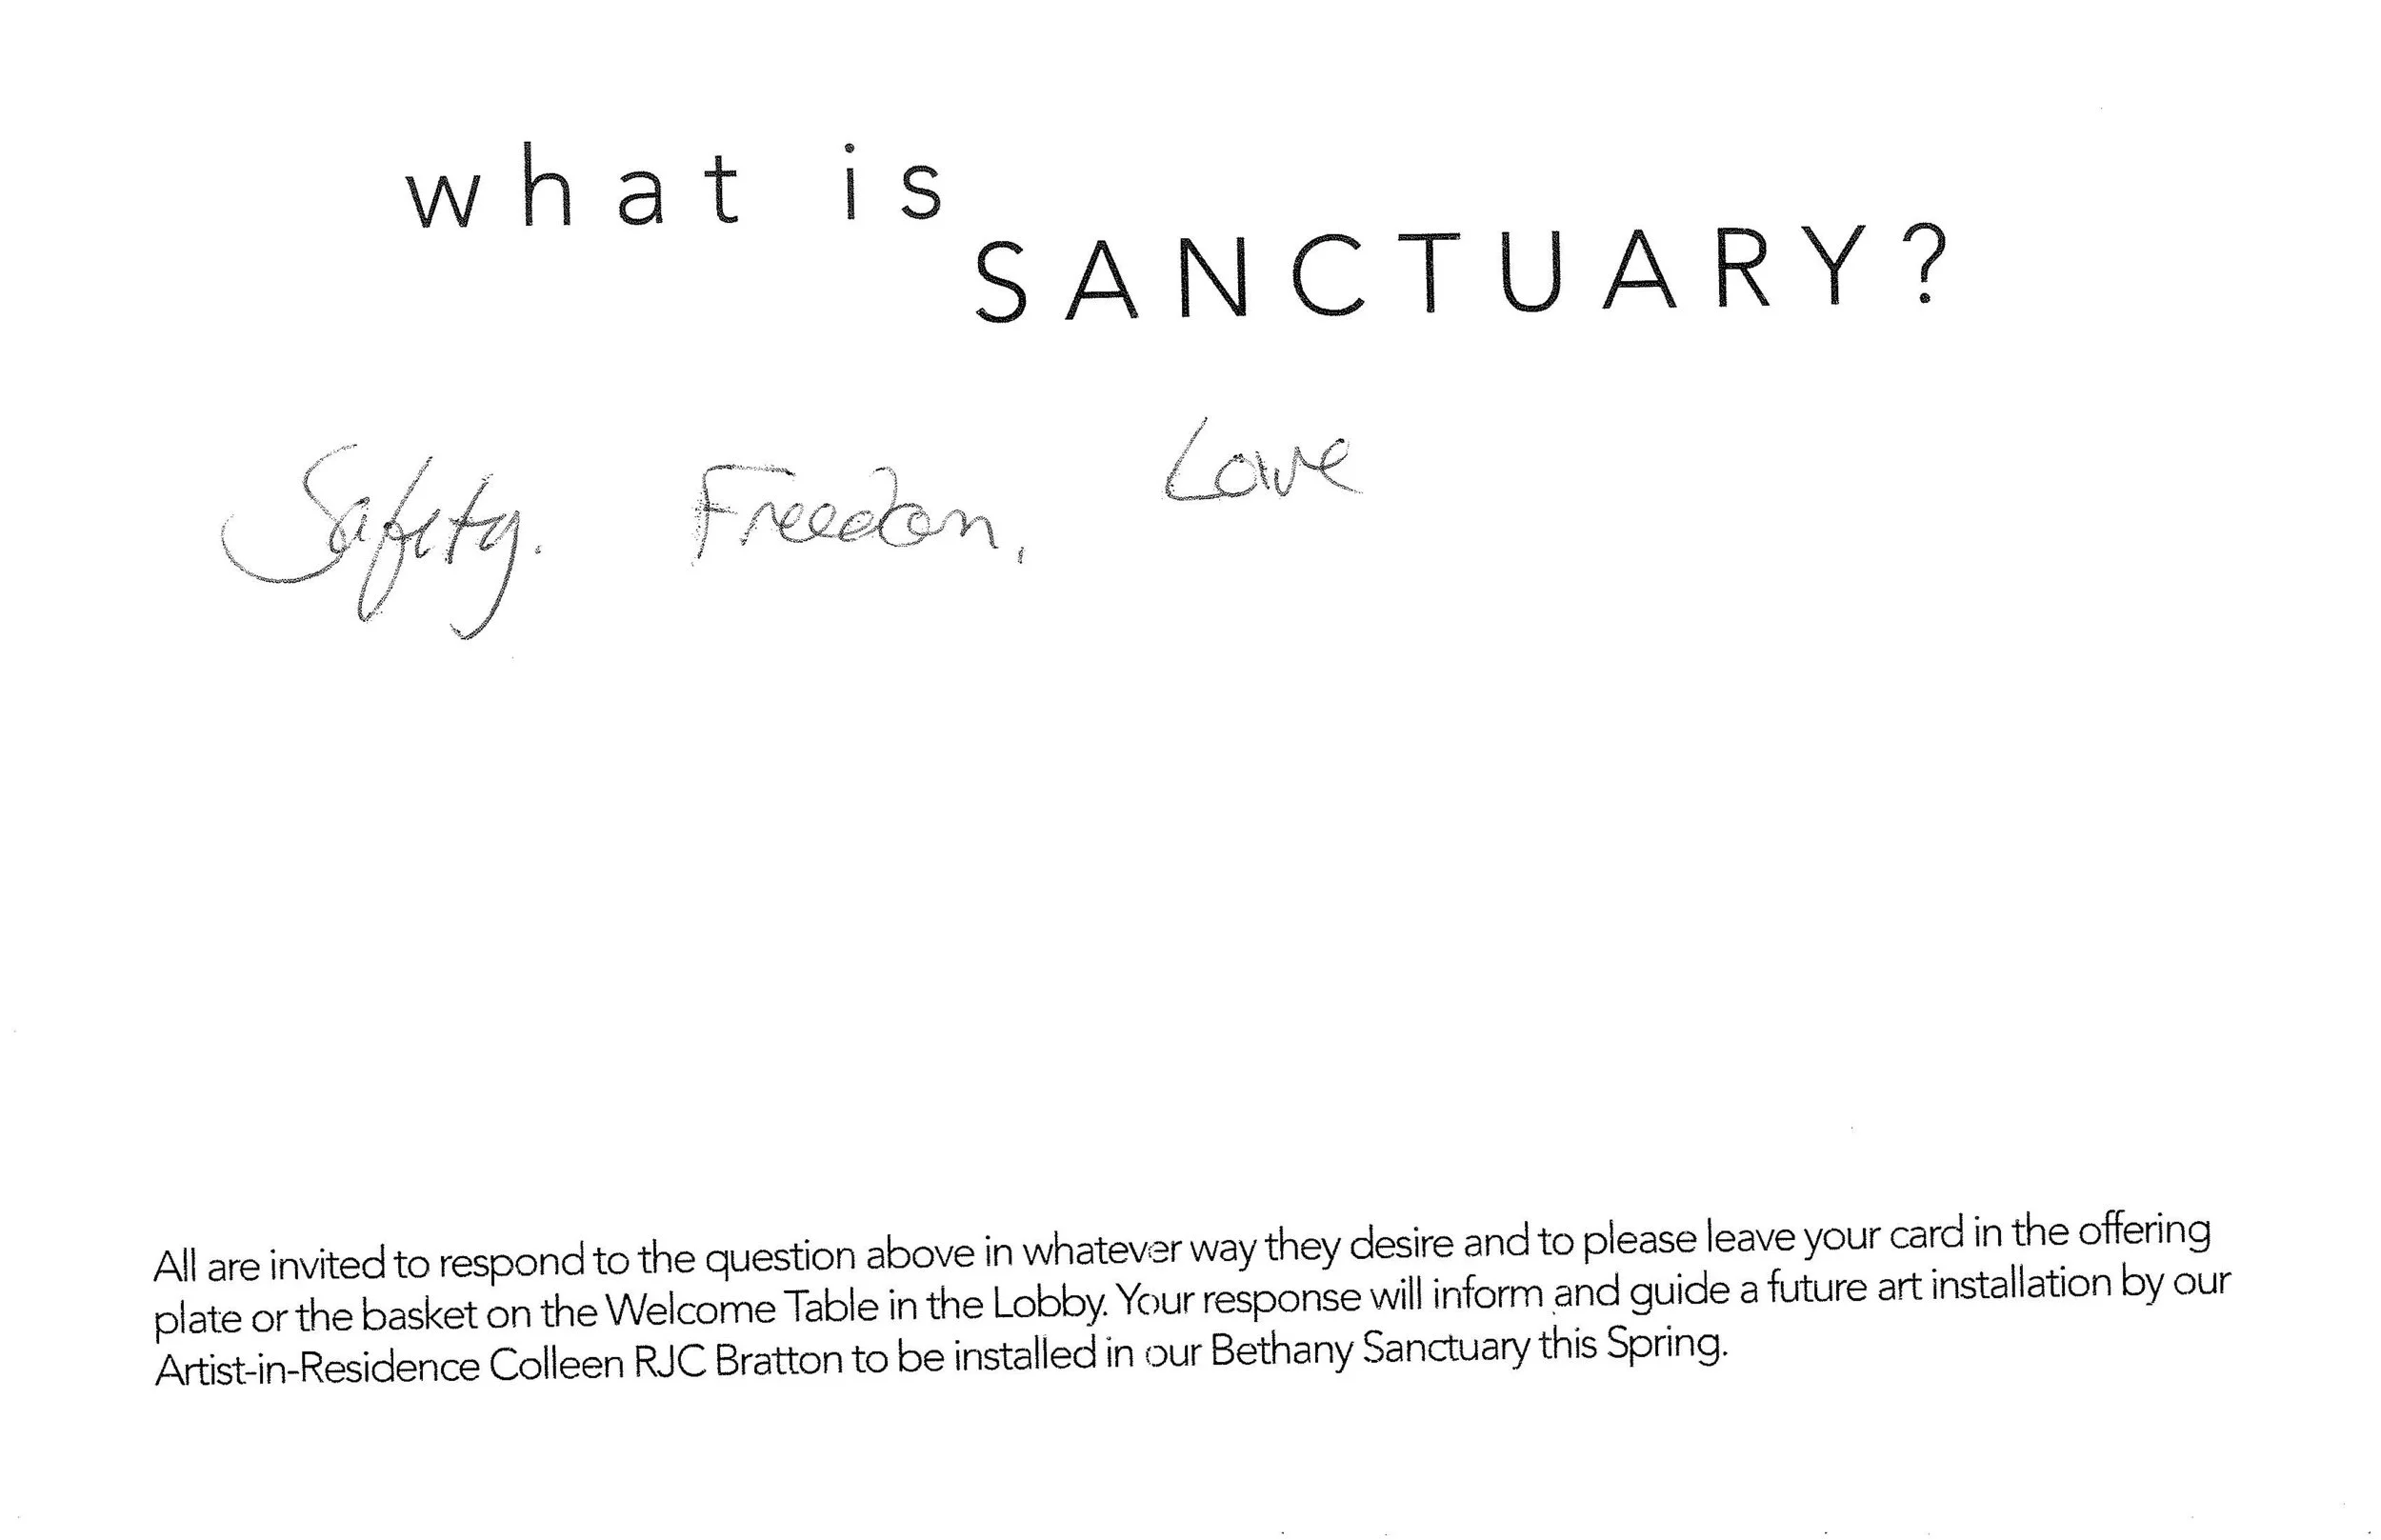 what is
SANCTUARY?
Safety. Freedom, Love
All are invited to respond to the question above in whatever way they desire and to please leave your card in the offering
plate or the basket on the Welcome Table in the Lobby. Your response will inform and guide a future art installation by our
Artist-in-Residence Colleen RJC Bratton to be installed in our Bethany Sanctuary this Spring.